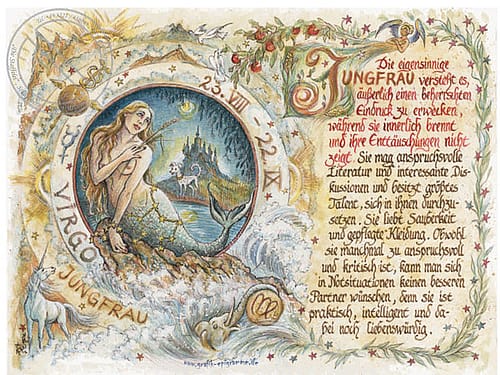 Die eigensinnige
JUNGFRAU versteht es,
äußerlich einen beherrschten
Eindruck zu erwecken,
während sie innerlich brennt
und ihre Enttäuschungen nicht
zeigt. Sie mag anspruchsvolle
Literatur und interessante Dis-
kussionen und besitzt größtes
Talent, sich in ihnen durchzu-
setzen. Sie liebt Sauberkeit
und gepflegte Kleidung. Obwohl
sie manchmal zu anspruchsvoll
und kritisch ist, kann man sich
in Notsituationen keinen besseren
Partner wünschen, denn sie ist
praktisch, intelligent und da-
bei noch liebenswürdig.
23. VIII - 22. IX
VIRGO
JUNGFRAU